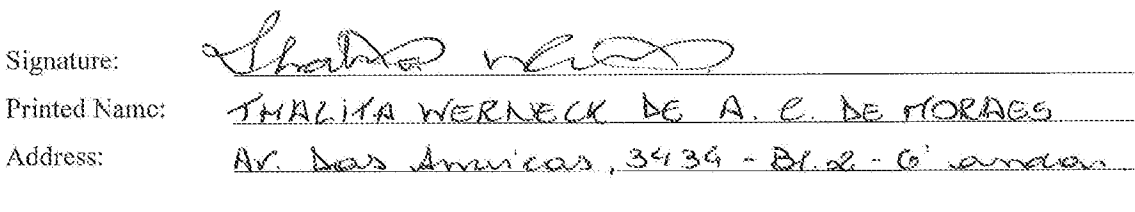 Signature: Thalita
Printed Name: THALITA WERNECK DE A. C. DE MORAES
Address: Av. Das Américas, 3434 - Bl. 2 - 6º andar